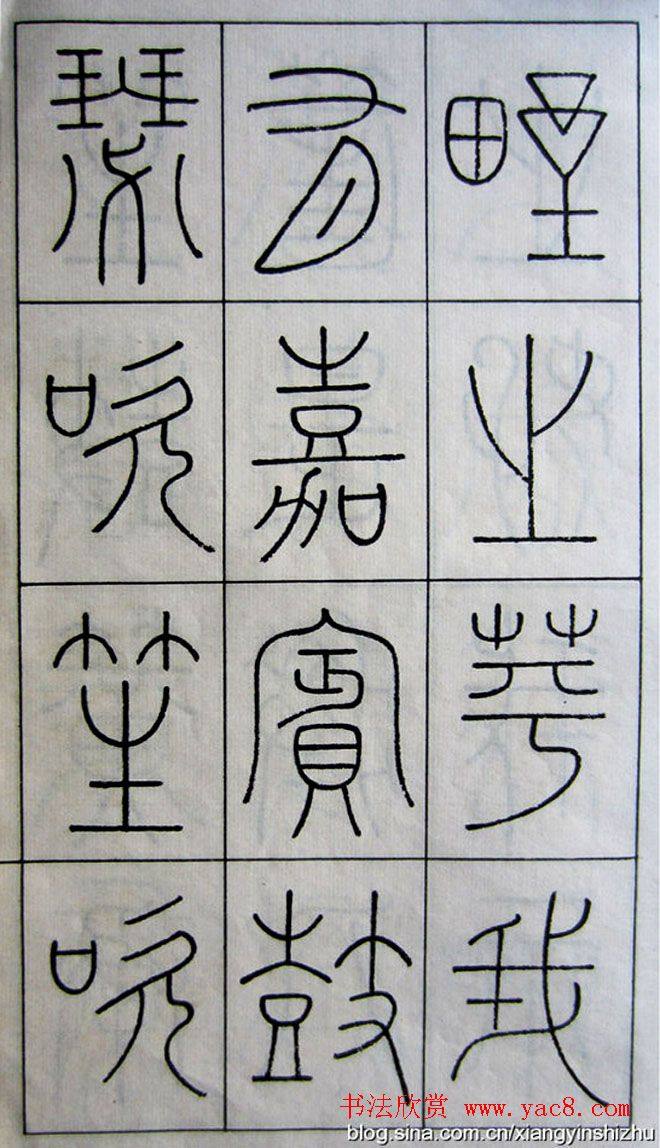 野之苹我
有嘉賓鼓
瑟吹笙吹
书法欣赏 www.yac8.com
blog.sina.com.cn/xiangyinshizhu